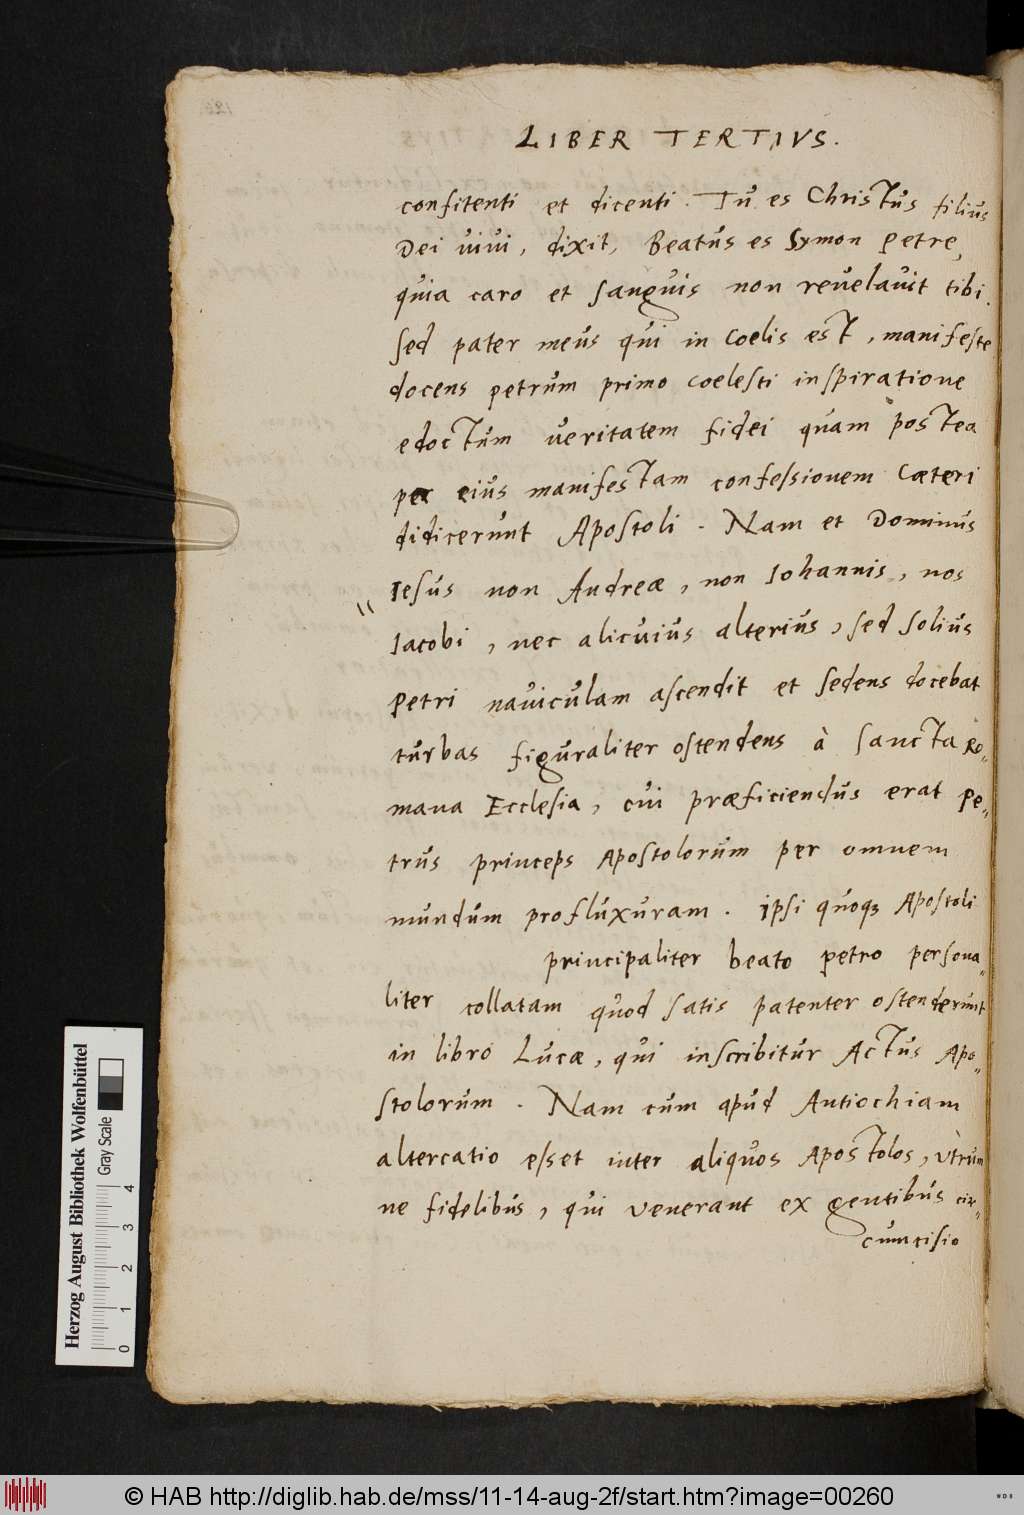 LIBER TERTIVS.
confitenti et dicenti. Tu es Christus filius
Dei vivi, dixit, Beatus es Symon Petre,
quia caro et sanguis non revelavit tibi.
sed pater meus qui in Coelis est, manifeste
docens petrum primo coelesti inspiratione
edoctum veritatem fidei quam postea
per eius manifestam confessionem Cæteri
didicerunt Apostoli. Nam et Dominus
" Iesus non Andreæ, non Iohannis, nos
Iacobi, nec alicuius alterius, sed solius
Petri naviculam ascendit et sedens docebat
turbas figuraliter ostendens à sancta Ro„
mana Ecclesia, cui præficiendus erat Pe„
trus princeps Apostolorum per omnem
mundum profluxuram. Ipsi quoq; Apostoli
principaliter beato petro persona„
liter collatam quod satis patenter ostenderunt
in libro Lucæ, qui inscribitur Actus Apo„
stolorum. Nam cum apud Antiochiam
altercatio esset inter aliquos Apostolos, utrum
ne fidelibus, qui venerant ex gentibus cir„
cumcisio
Herzog August Bibliothek Wolfenbüttel
Gray Scale
0 1 2 3 4
© HAB http://diglib.hab.de/mss/11-14-aug-2f/start.htm?image=00260